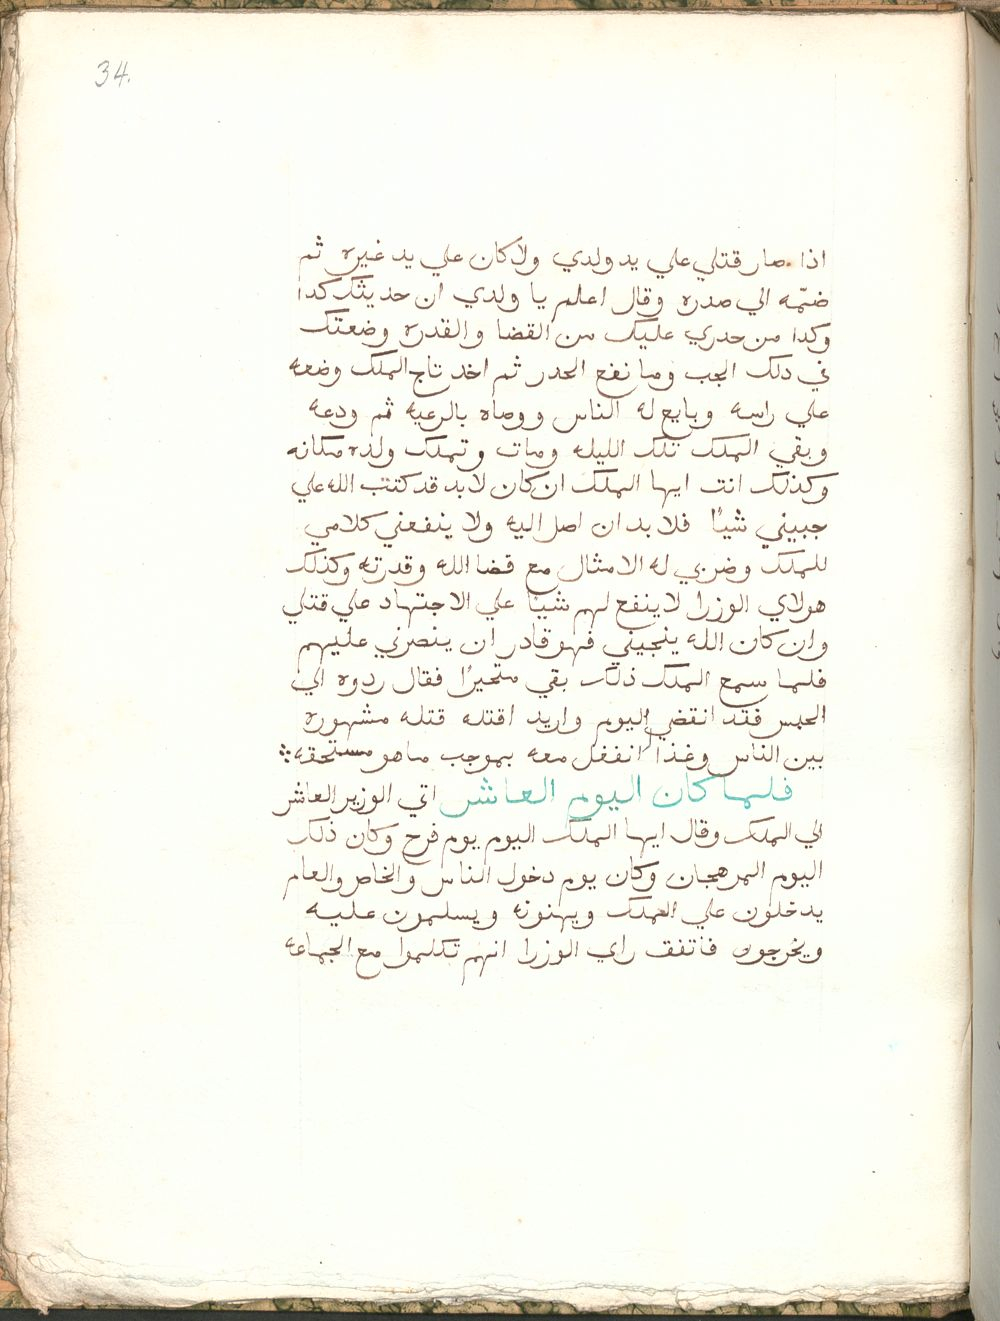 34.
اذا صار قتلي علي يد ولدي ولا كان علي يد غيره ثم
ضمّه الي صدره وقال اعلم يا ولدي ان حديثك كدا
وكدا من حدري عليك من القضا والقدره وضعتك
في دلك الجب وما نفع الحدر ثم اخد تاج الملك وضعه
علي راسه وبايع له الناس ووصاه بالرعيه ثم ودعه
وبقي الملك تلك الليله ومات وتملك ولده مكانه
وكذلك انت ايها الملك ان كان لابد قد كتب الله علي
جبيني شيًا فلا بد ان اصل اليه ولا ينفعني كلامي
للملك وضربي له الامثال مع قضا الله وقدرته وكذلك
هولاي الوزرا لا ينفع لهم شيئا علي الاجتهاد علي قتلي
وان كان الله ينجيني فهو قادر ان ينصرني عليهم
فلما سمع الملك ذلك بقي متحيرًا فقال ردوه الي
الحبس فقد انقضي اليوم واريد اقتله قتله مشهوره
بين الناس وغذا انفغل معه بموجب ما هو مستحقه
فلما كان اليوم العاشر اتي الوزير العاشر
الي الملك وقال ايها الملك اليوم يوم فرح وكان ذلك
اليوم المرهجان وكان يوم دخول الناس والخاص والعام
يدخلون علي الملك ويهنونه ويسلمون عليه
ويخرجون فاتفق راي الوزرا انهم تكلموا مع الجماعه